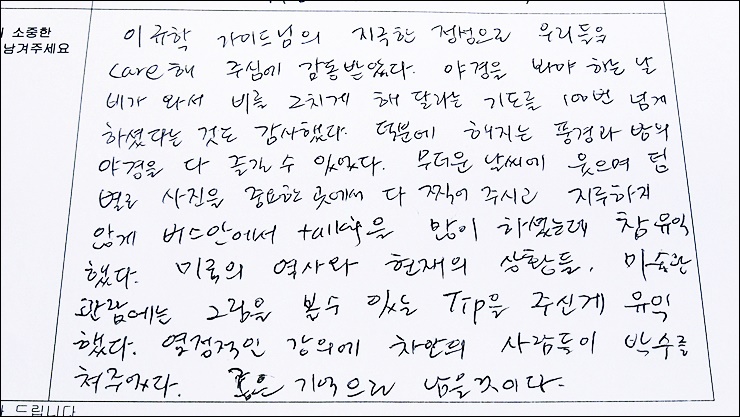 소중한
남겨주세요
이규학 가이드님의 지극한 정성으로 우리들을
care해 주심에 감동받았다. 야경을 봐야 하는 날
비가 와서 비를 그치게 해 달라는 기도를 100번 넘게
하셨다는 것도 감사했다. 덕분에 해지는 풍경과 밤의
야경을 다 즐길 수 있었다. 무더운 날씨에 웃으며 팀
별로 사진을 중요한 곳에서 다 찍어 주시고 지루하지
않게 버스안에서 talking을 많이 하셨는데 참 유익
했다. 미국의 역사와 현재의 상황들, 미술관
관람에는 그림을 볼수 있는 Tip을 주신게 유익
했다. 열정적인 강의에 차안의 사람들이 박수를
쳐주었다. 좋은 기억으로 남을것이다.
드립니다